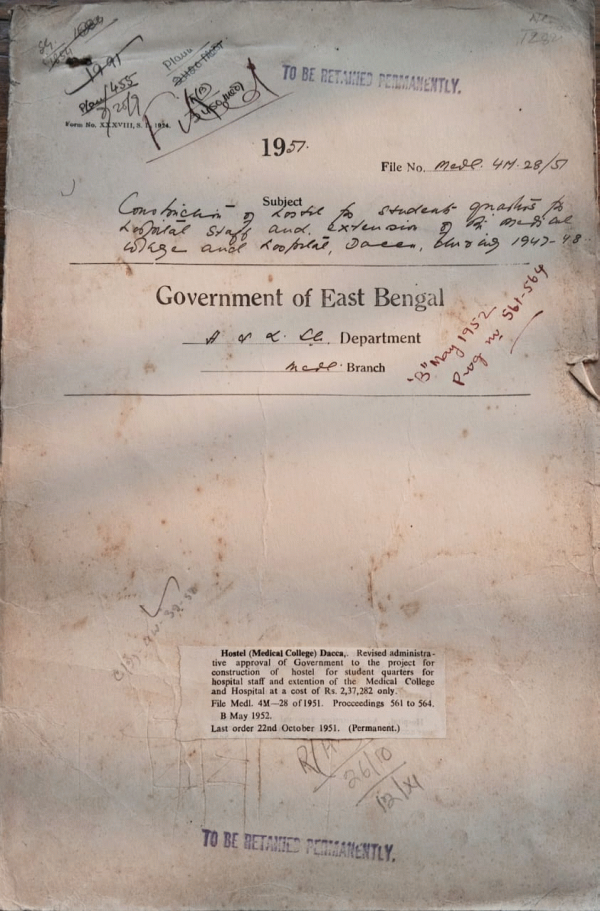 1991
Plan/455
Form No. XXXVIII, S.
TO BE RETAINED PERMANENTLY.
1951.
File No. Medl. 4M-28/51
Subject
Construction of Hostel for student quarters for
Hospital Staff and extension of the Medical
College and Hospital, Dacca, during 1947-48.
Government of East Bengal
Department
Medl. Branch
"B" May 1952
Prog no 561-564
Hostel (Medical College) Dacca,. Revised administra-
tive approval of Government to the project for
construction of hostel for student quarters for
hospital staff and extention of the Medical College
and Hospital at a cost of Rs. 2,37,282 only.
File Medl. 4M—28 of 1951. Procceedings 561 to 564.
B May 1952.
Last order 22nd October 1951. (Permanent.)
26/10
TO BE RETAINED PERMANENTLY.